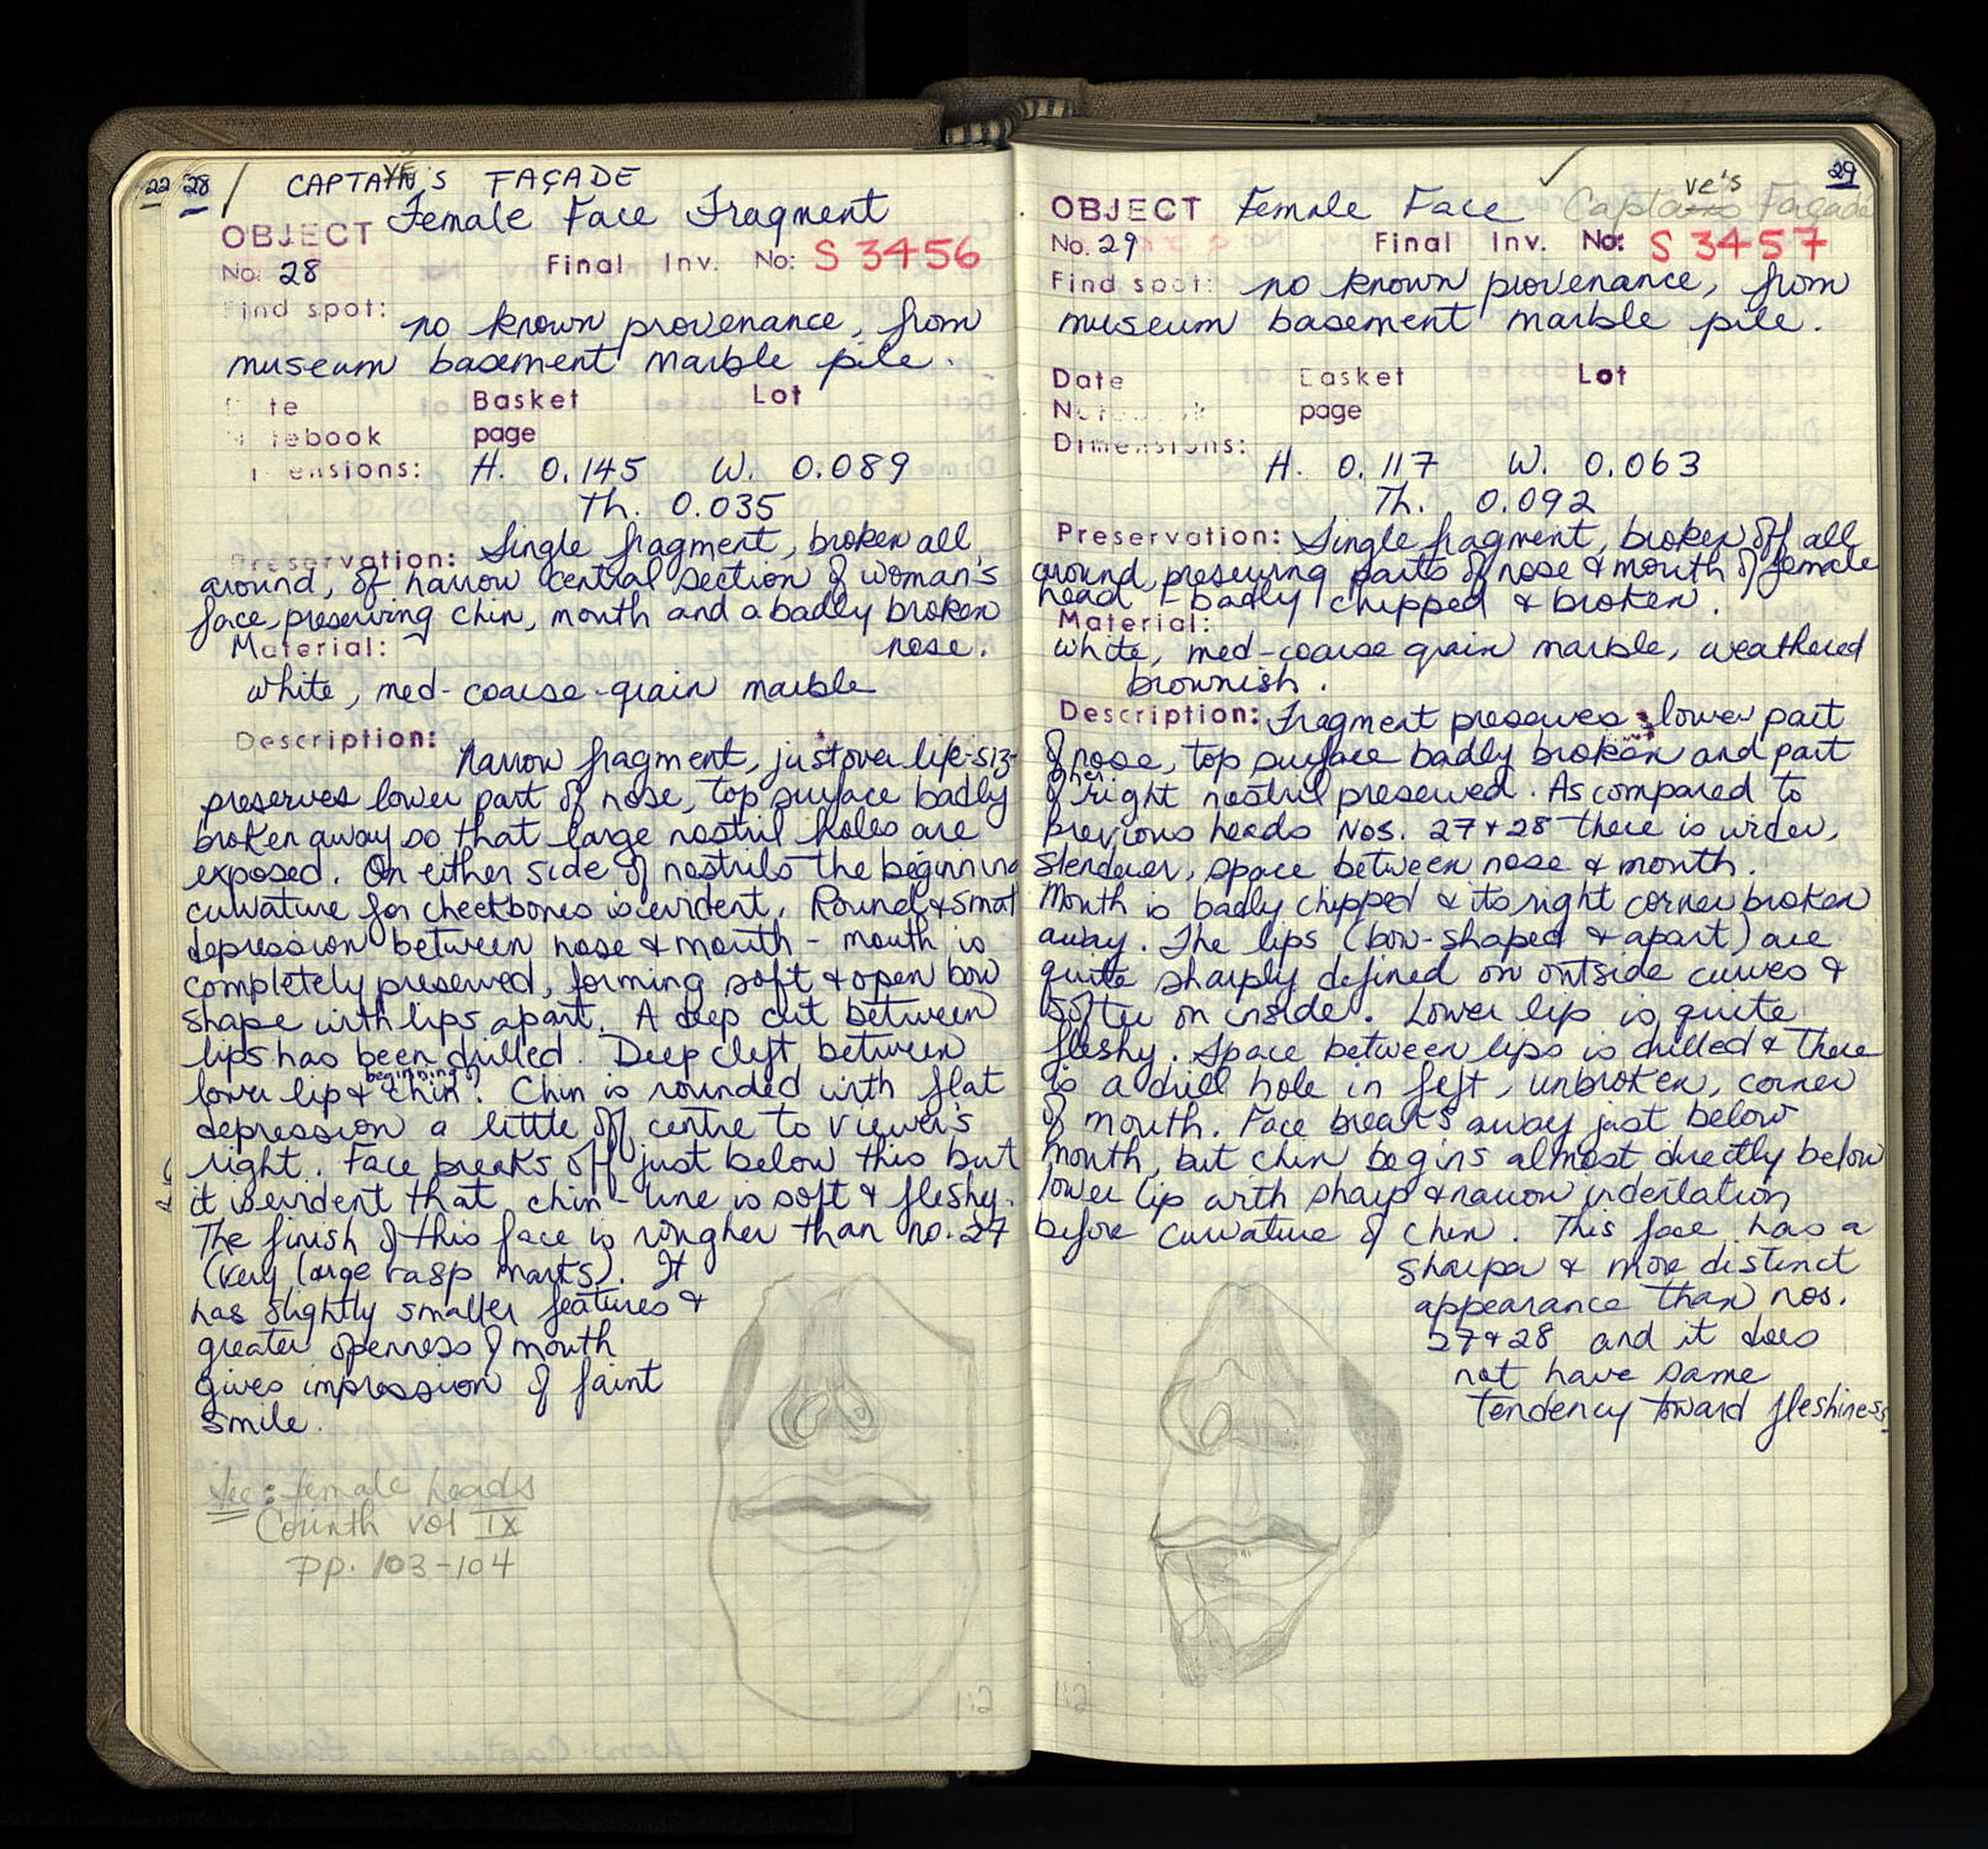 22 28 / CAPTAIVE'S FAÇADE
OBJECT Female Face Fragment
No: 28 Final Inv. No: S 3456
Find spot: no known provenance, from
museum basement marble pile.
Date Basket Lot
Notebook page
Dimensions: H. 0.145 W. 0.089
Th. 0.035
Preservation: Single fragment, broken all
around, of narrow central section of woman's
face, preserving chin, mouth and a badly broken
Material: nose.
white, med-coarse-grain marble
Description: Narrow fragment, just over life-siz-
preserves lower part of nose, top surface badly
broken away so that large nostril holes are
exposed. On either side of nostrils the beginning
curvature for cheekbones is evident. Round & small
depression between nose & mouth - mouth is
completely preserved, forming soft & open bow
shape with lips apart. A deep cut between
lips has been drilled. Deep cleft between
lower lip & beginning of chin. Chin is rounded with flat
depression a little off centre to viewer's
right. Face breaks off just below this but
it is evident that chin-line is soft & fleshy.
The finish of this face is rougher than no. 27
(very large rasp marks). It
has slightly smaller features &
greater openness of mouth
gives impression of faint
smile.
See: female heads
Corinth vol IX
pp. 103-104
1:2
29
OBJECT Female Face Captaive's Façade
No. 29 Final Inv. No: S 3457
Find spot: no known provenance, from
museum basement marble pile.
Date Basket Lot
Notebook page
Dimensions: H. 0.117 W. 0.063
Th. 0.092
Preservation: Single fragment, broken off all
around, preserving parts of nose & mouth of female
head - badly chipped & broken.
Material:
white, med-coarse grain marble, weathered
brownish.
Description: Fragment preserves lower part
of nose, top surface badly broken and part
of her right nostril preserved. As compared to
previous heads Nos. 27 & 28 there is wider,
slenderer, space between nose & mouth.
Mouth is badly chipped & its right corner broken
away. The lips (bow-shaped & apart) are
quite sharply defined on outside curves &
softer on inside. Lower lip is quite
fleshy. Space between lips is drilled & there
is a drill hole in left, unbroken, corner
of mouth. Face breaks away just below
mouth, but chin begins almost directly below
lower lip with sharp & narrow indentation
before curvature of chin. This face has a
sharper & more distinct
appearance than nos.
27 & 28 and it does
not have same
tendency toward fleshiness
1:2